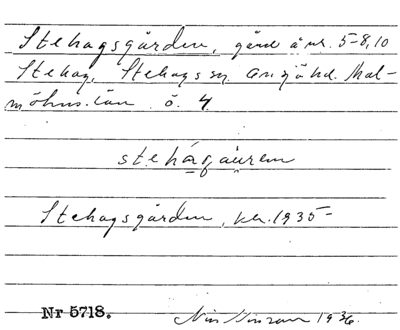 Stehagsgården, gård å nr. 5-8,10
Stehag, Stehags sn. Onsjö hd. Mal-
möhus län. ö. 4
stehágáuren
Stehagsgården, kn. 1935-
Nr 5718. 1936.